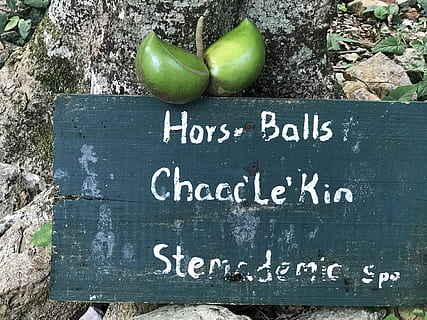 Horse Balls
Chaac'Le'Kin
Stemademic spo